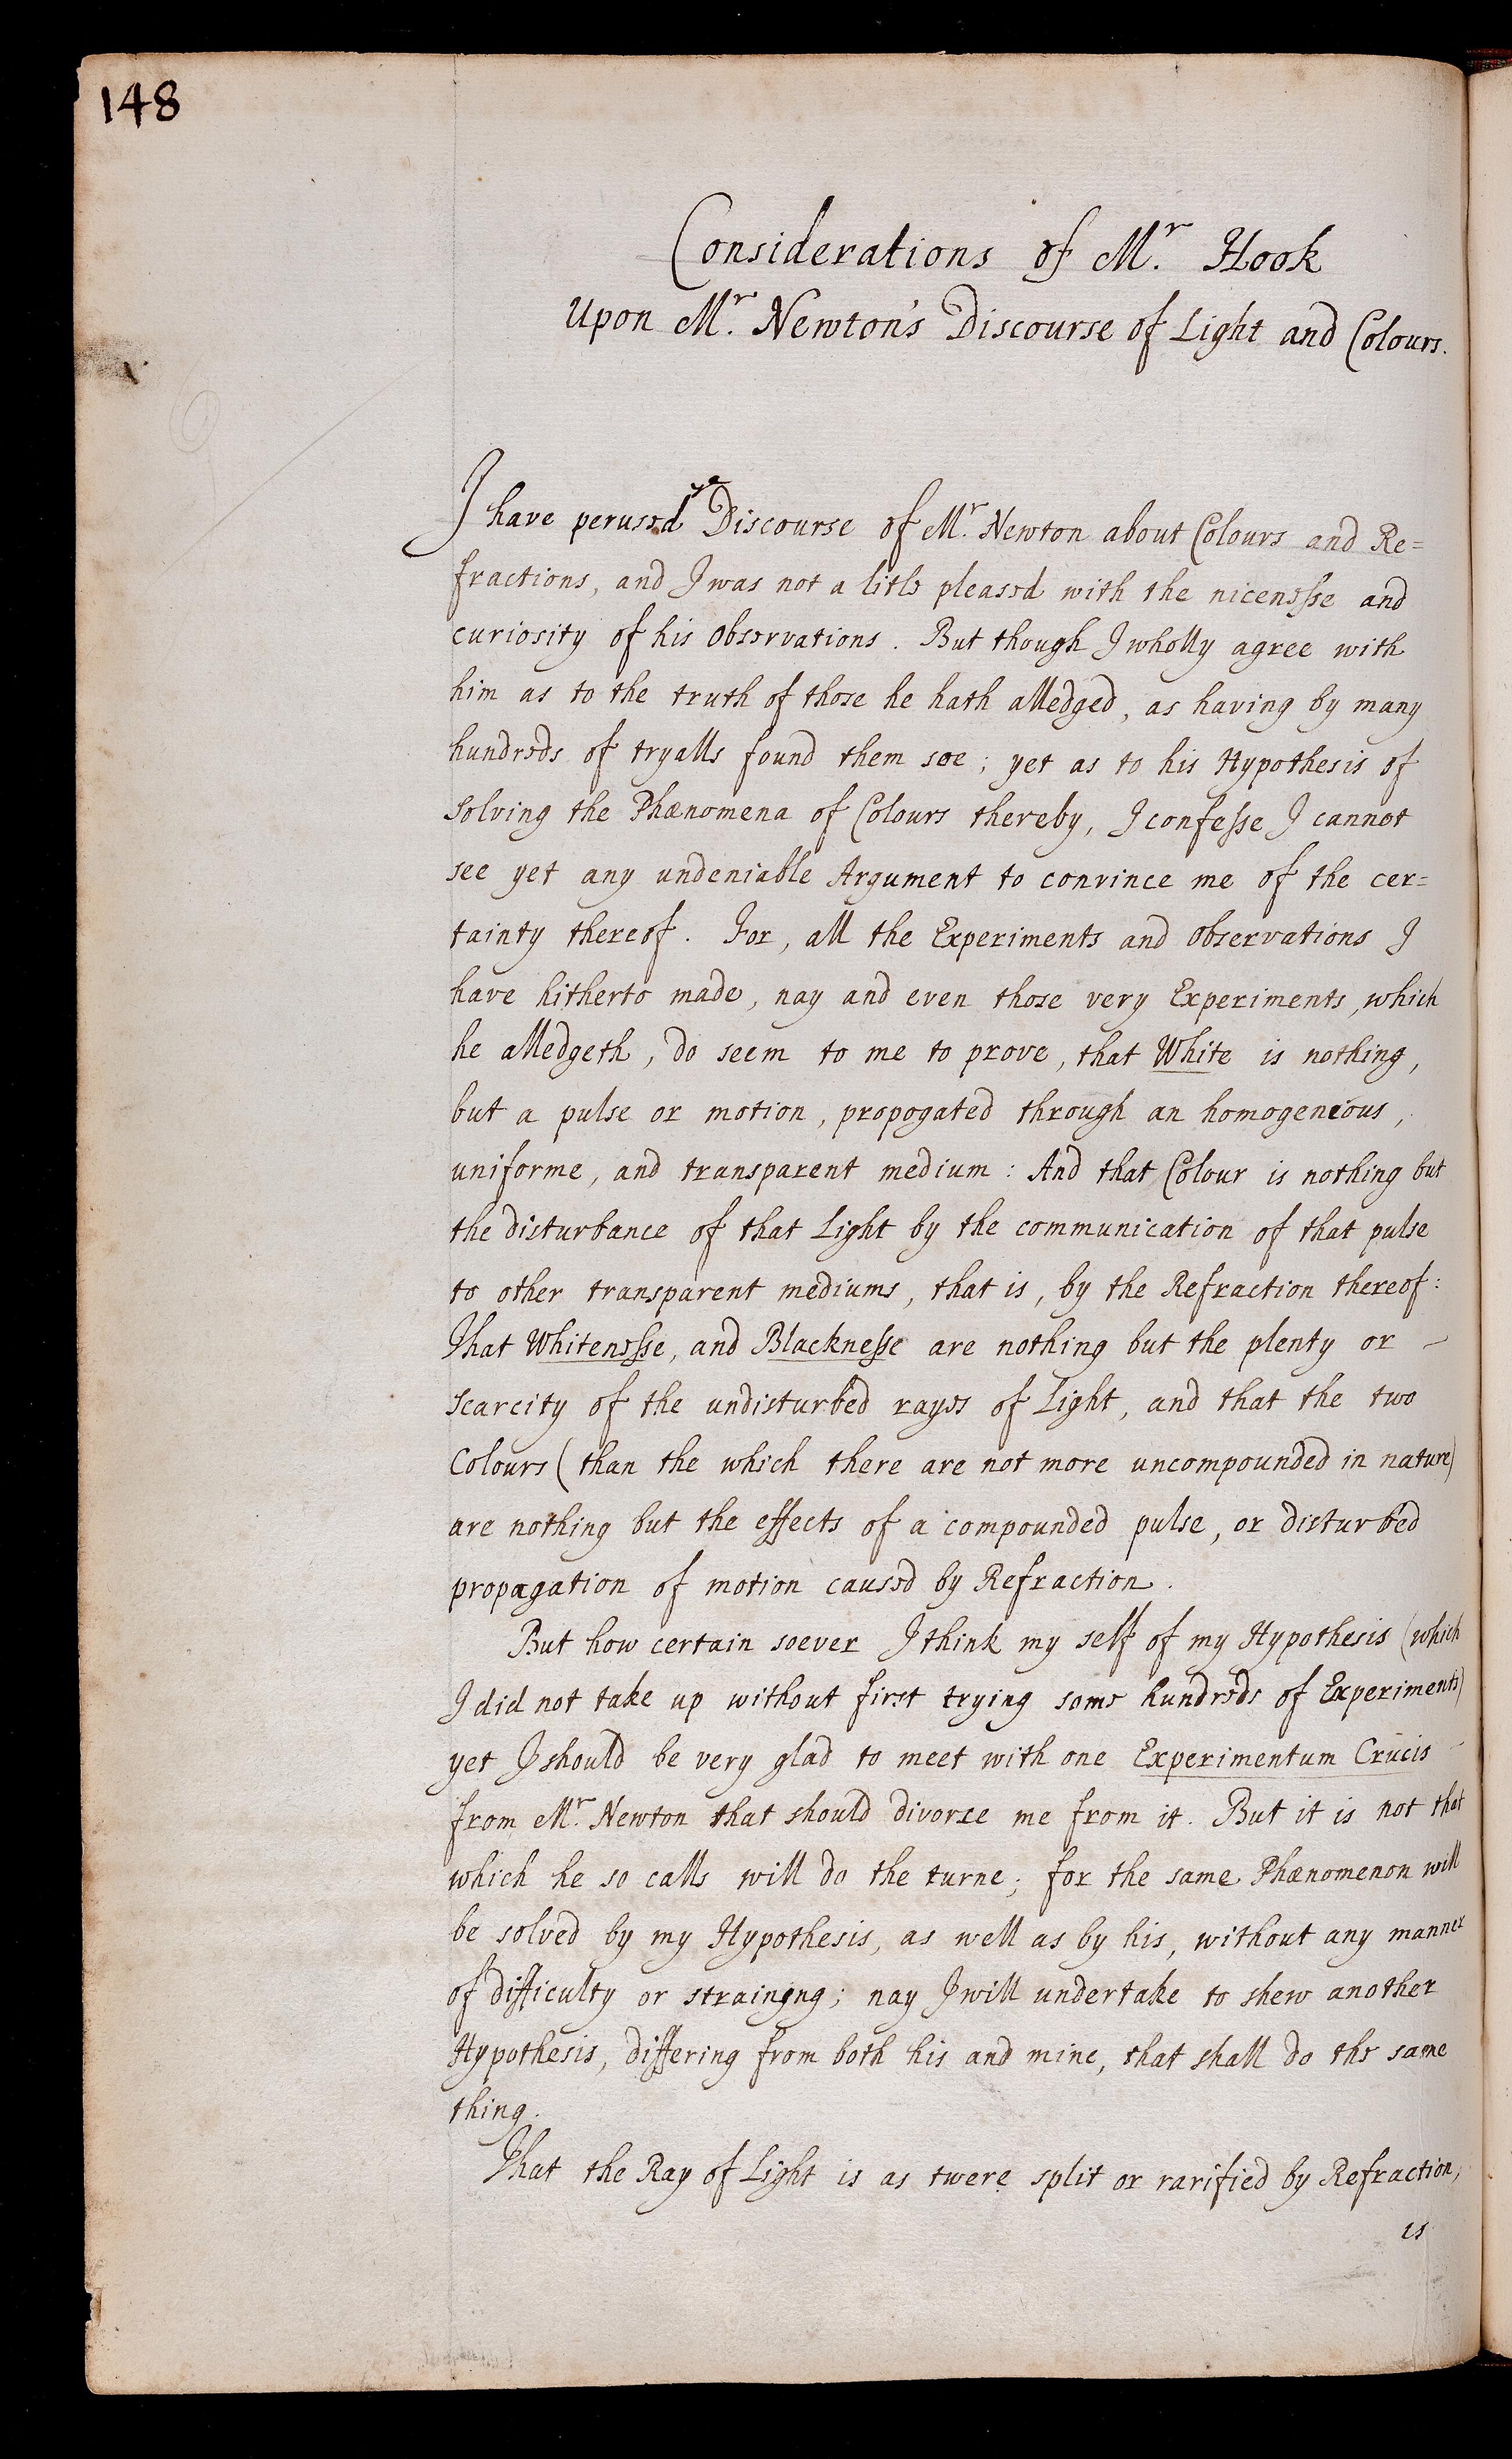 148
Considerations of Mr. Hook
Upon Mr. Newton's Discourse of Light and Colours.
I have perused ye Discourse of Mr. Newton about Colours and Re=
fractions, and I was not a litle pleased with the nicenesse and
curiosity of his observations. But though I wholly agree with
him as to the truth of those he hath alledged, as having by many
hundreds of tryalls found them soe; yet as to his Hypothesis of
solving the Phænomena of Colours thereby, I confesse I cannot
see yet any undeniable Argument to convince me of the cer=
tainty thereof. For, all the Experiments and observations I
have hitherto made, nay and even those very Experiments, which
he alledgeth, do seem to me to prove, that White is nothing,
but a pulse or motion, propogated through an homogeneous,
uniforme, and transparent medium: And that Colour is nothing but
the disturbance of that Light by the communication of that pulse
to other transparent mediums, that is, by the Refraction thereof:
That Whitenesse, and Blacknesse are nothing but the plenty or -
scarcity of the undisturbed rayes of Light, and that the two
Colours (than the which there are not more uncompounded in nature)
are nothing but the effects of a compounded pulse, or disturbed
propagation of motion caused by Refraction.
But how certain soever I think my self of my Hypothesis (which
I did not take up without first trying some hundreds of Experiments)
yet I should be very glad to meet with one Experimentum Crucis -
from Mr. Newton that should divorce me from it. But it is not that
which he so calls will do the turne; for the same Phænomenon will
be solved by my Hypothesis, as well as by his, without any manner
of difficulty or straining; nay I will undertake to shew another
Hypothesis, differing from both his and mine, that shall do the same
thing.
That the Ray of Light is as twere split or rarified by Refraction,
is